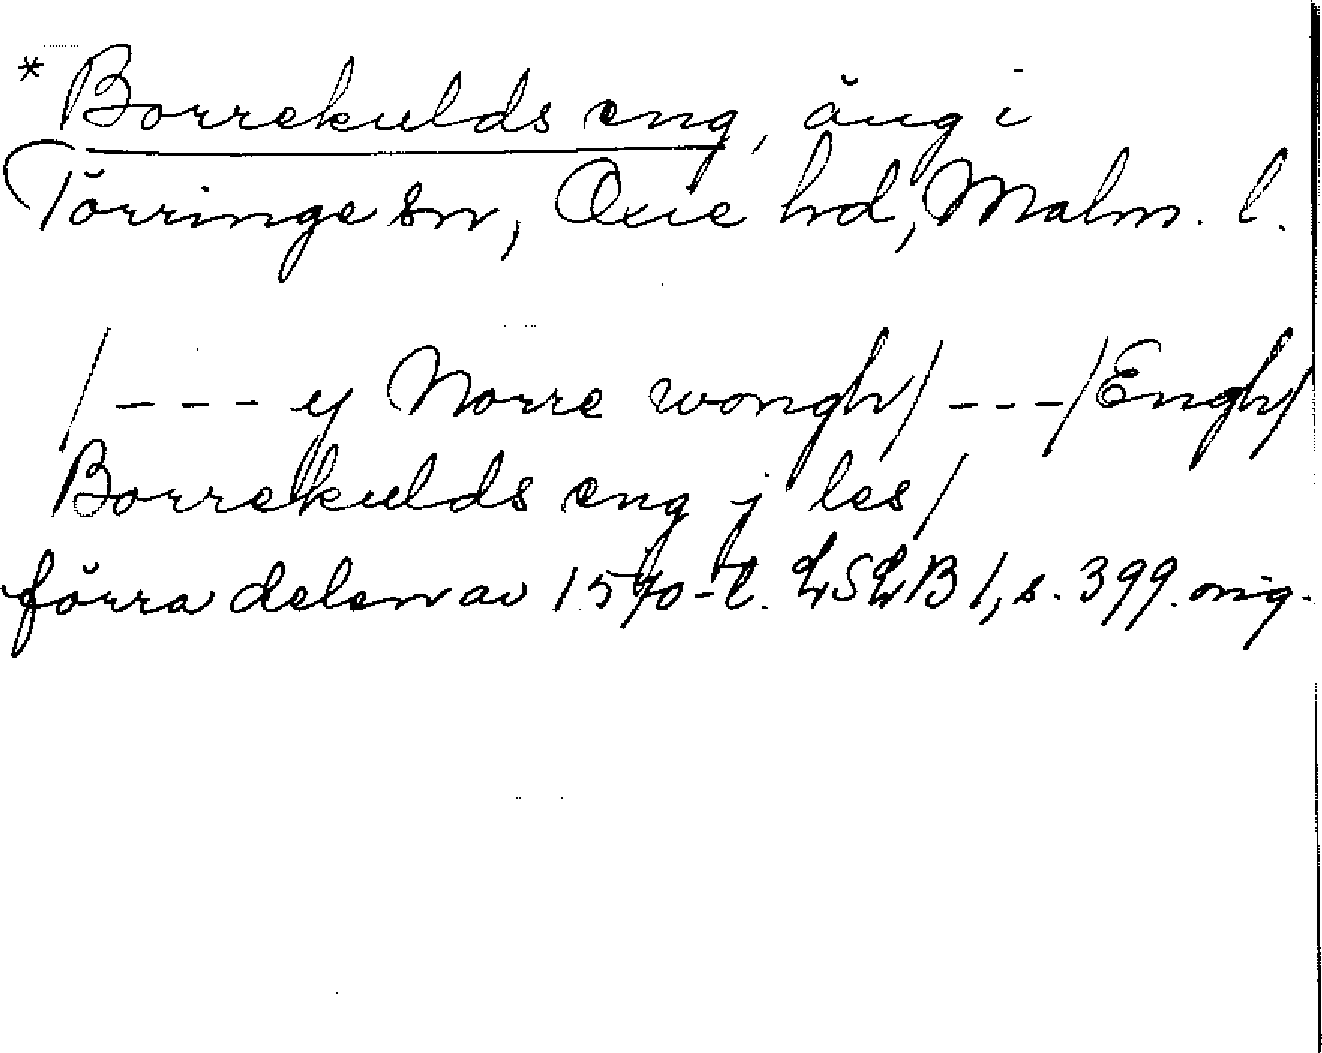 *Borrekulds eng, äng i
Törringe sn, Oxie hd, Malm. l.
/--- y Norre wongh/ ---/Engh/
Borrekulds eng j les/
förra delen av 1570-t. LSLB 1, s. 399. orig.